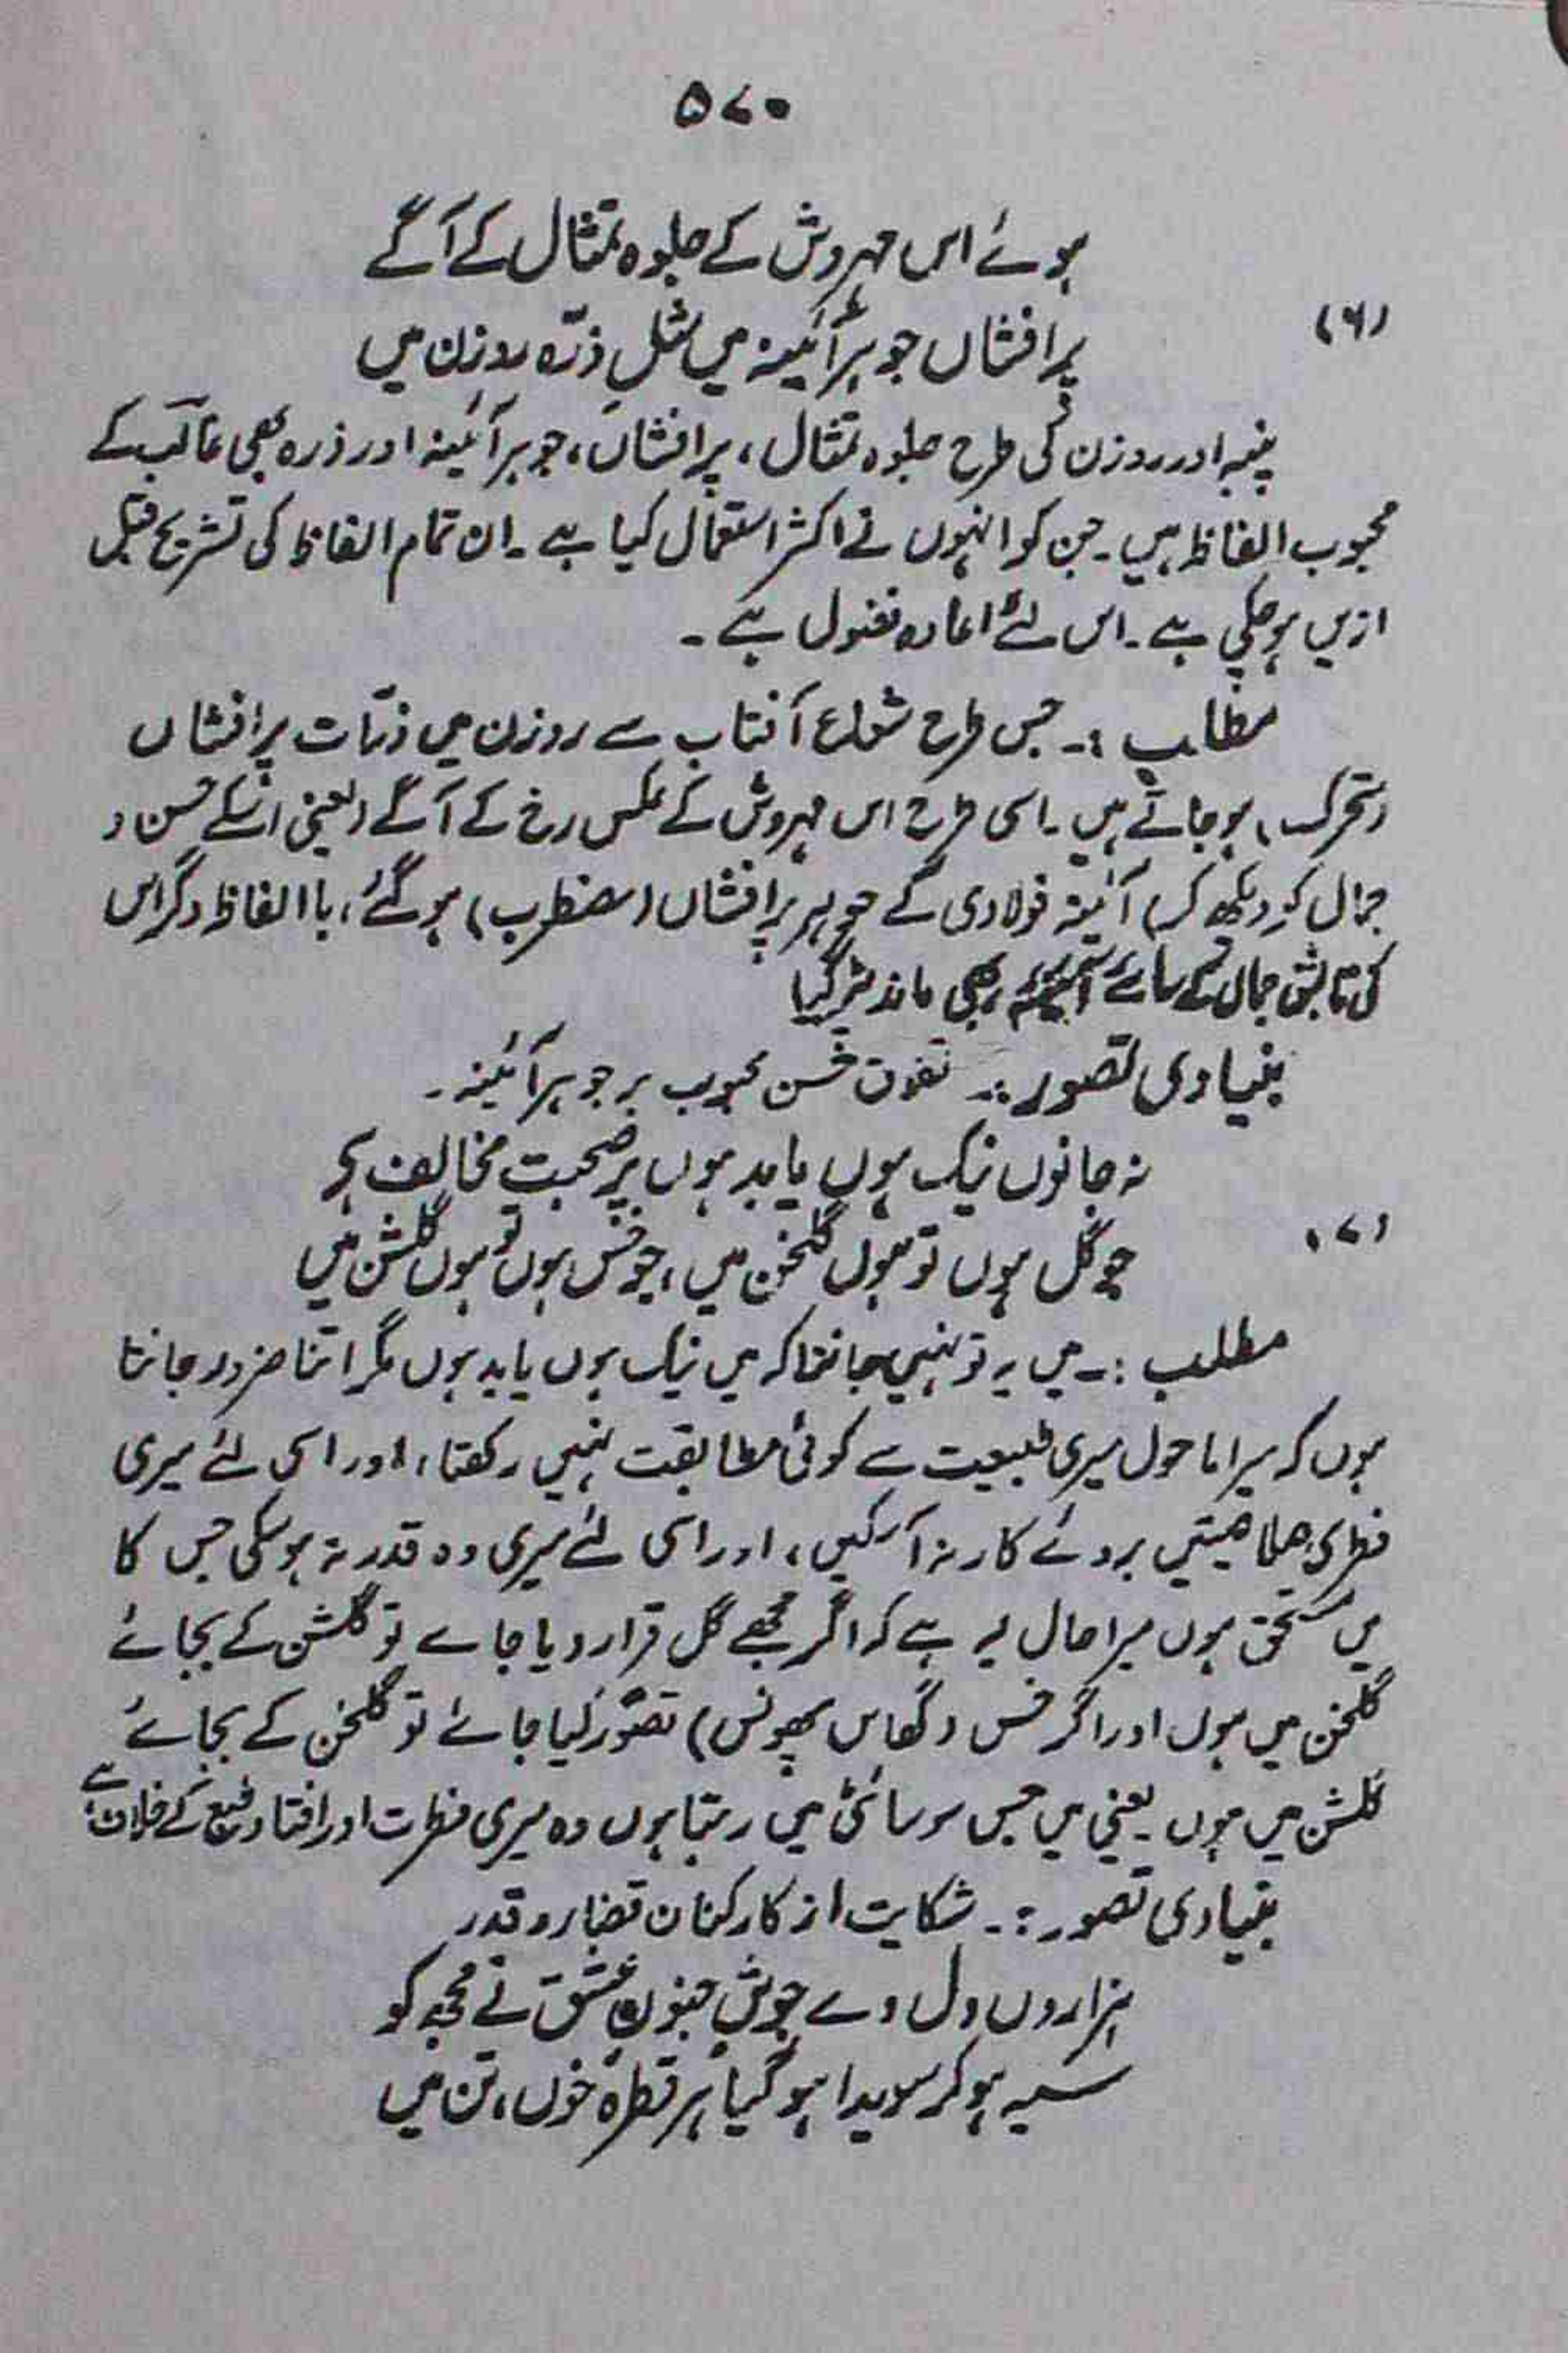 ۵۷۰
ہوئے اس مہروش کے جلوہ تمثال کے آگے
(۶)
پرافشاں جوہر آئینہ میں مثلِ ذرّہ روزن میں
پنبہ اور روزن کی طرح جلوہ تمثال، پرافشاں، جوہر آئینہ اور ذرہ بھی غالب کے
محبوب الفاظ ہیں۔ جن کو انہوں نے اکثر استعمال کیا ہے۔ ان تمام الفاظ کی تشریح قبل
ازیں ہوچکی ہے۔ اس لئے اعادہ فضول ہے۔
مطلب :۔ جس طرح شعاع آفتاب سے روزن میں ذرّات پرافشاں
(متحرک) ہوجاتے ہیں۔ اسی طرح اس مہروش کے عکس رخ کے آگے (یعنی اسکے حسن و
جمال کو دیکھ کر) آئینہ فولادی کے جوہر پرافشاں (مضطرب) ہوگئے، باالفاظ دگر اس
کی تابش جمال کے سامنے آئینہ بھی ماند پڑگیا
بنیادی تصور :۔ تفوق حسن محبوب بر جوہر آئینہ۔
نہ جانوں نیک ہوں یا بد ہوں پر صحبت مخالف ہے
(۷)
جو گل ہوں تو ہوں گلخن میں، جو خس ہوں تو ہوں گلشن میں
مطلب :۔ میں یہ تو نہیں جانتا کہ میں نیک ہوں یا بد ہوں مگر اتنا ضرور جانتا
ہوں کہ میرا ماحول میری طبیعت سے کوئی مطابقت نہیں رکھتا، اور اسی لئے میری
فطری صلاحیتیں بروئے کار نہ آسکیں، اور اسی لئے میری وہ قدر نہ ہوسکی جس کا
میں مستحق ہوں میرا حال یہ ہے کہ اگر مجھے گل قرار دیا جاے تو گلشن کے بجائے
گلخن میں ہوں اور اگر خس (گھاس پھونس) تصوّر کیا جائے تو گلخن کے بجائے
گلشن میں ہوں۔ یعنی میں جس سوسائٹی میں رہتا ہوں وہ میری فطرت اور افتاد طبع کے خلاف ہے
بنیادی تصور :۔ شکایت از کارکنان قضا و قدر
ہزاروں دل دے جوشِ جنونِ عشق نے مجھ کو
سیہ ہوکر سویدا ہوگیا ہر قطرۂ خوں، تن میں